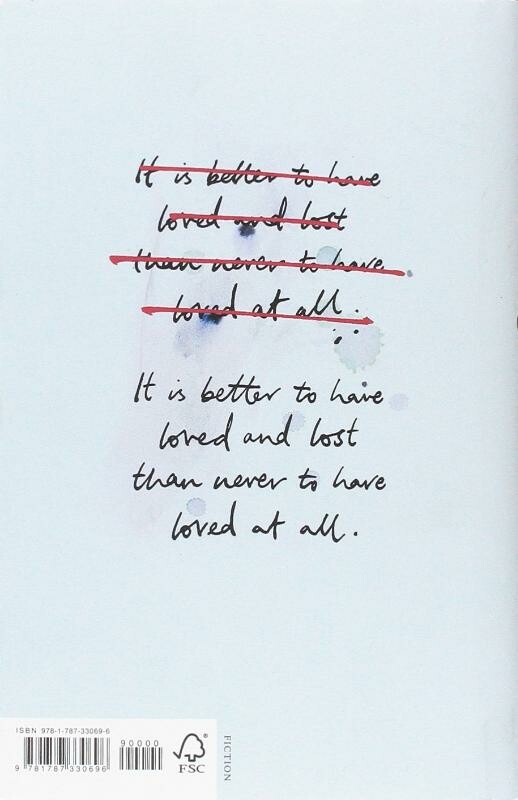 It is better to have
loved and lost
than never to have
loved at all.
It is better to have
loved and lost
than never to have
loved at all.
ISBN 978-1-787-33069-6
90000
9 781787 330696
FSC
FICTION